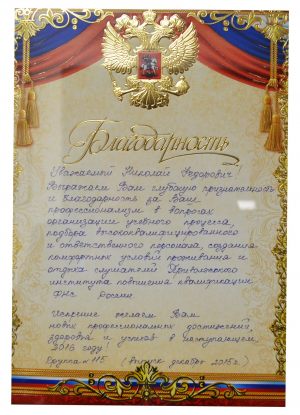 Благодарность
Уважаемый Николай Федорович!
Выражаем Вам глубокую признательность
и благодарность за Ваш
профессионализм в вопросах
организации учебного процесса,
подбора высококвалифицированного
и ответственного персонала, создания
комфортных условий проживания и
отдыха слушателей Приволжского
института повышения квалификации
ФНС России.
Искренне желаем Вам
новых профессиональных достижений,
здоровья и успехов в наступающем,
2016 году!
Группа № 115 (выпуск декабрь 2015г.